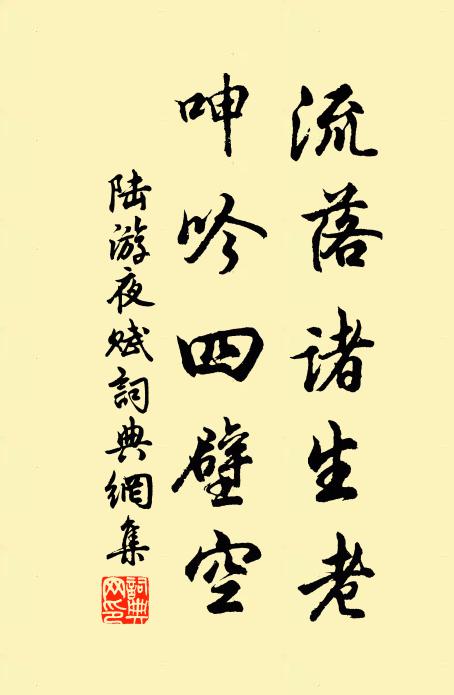 流落诸生老
呻吟四壁空
陆游夜赋詞典網集
詞典网印